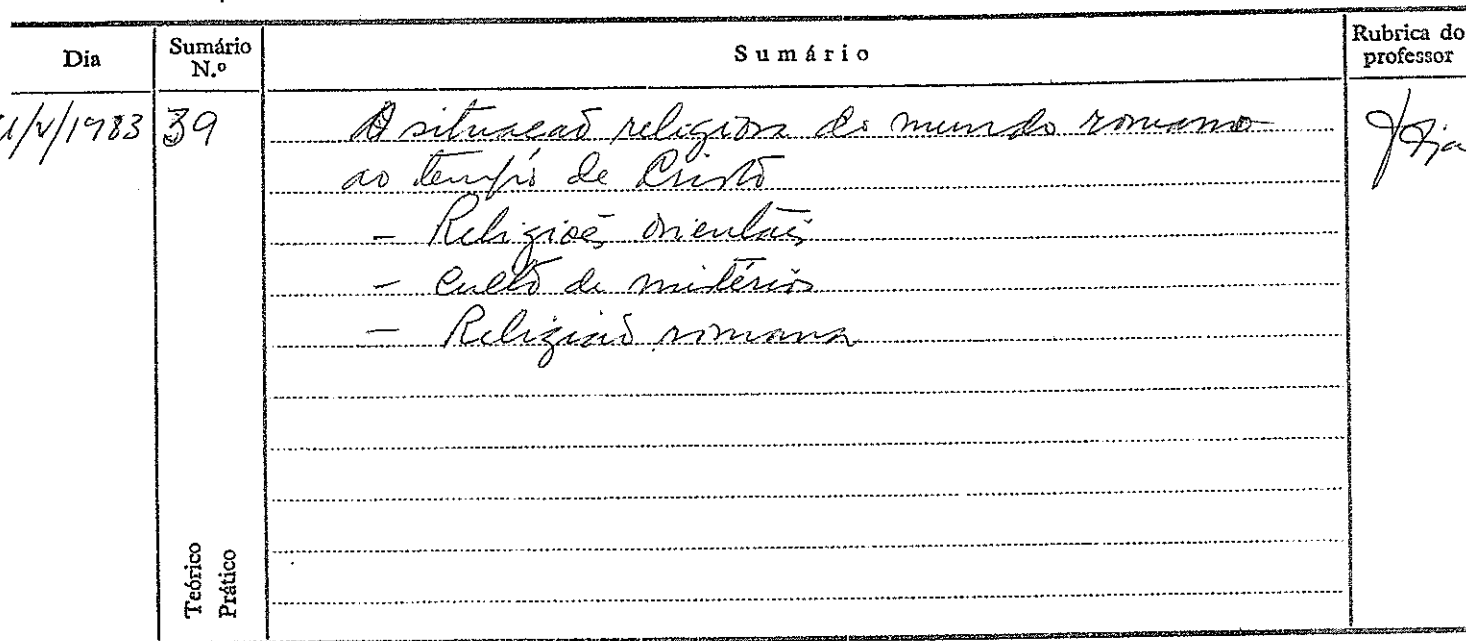 Dia Sumário N.º Sumário Rubrica do professor
/V/1983 39 A situação religiosa do mundo romano
ao tempo de Cristo
- Religiões orientais
- Culto de mistérios
- Religião romana
Teórico
Prático